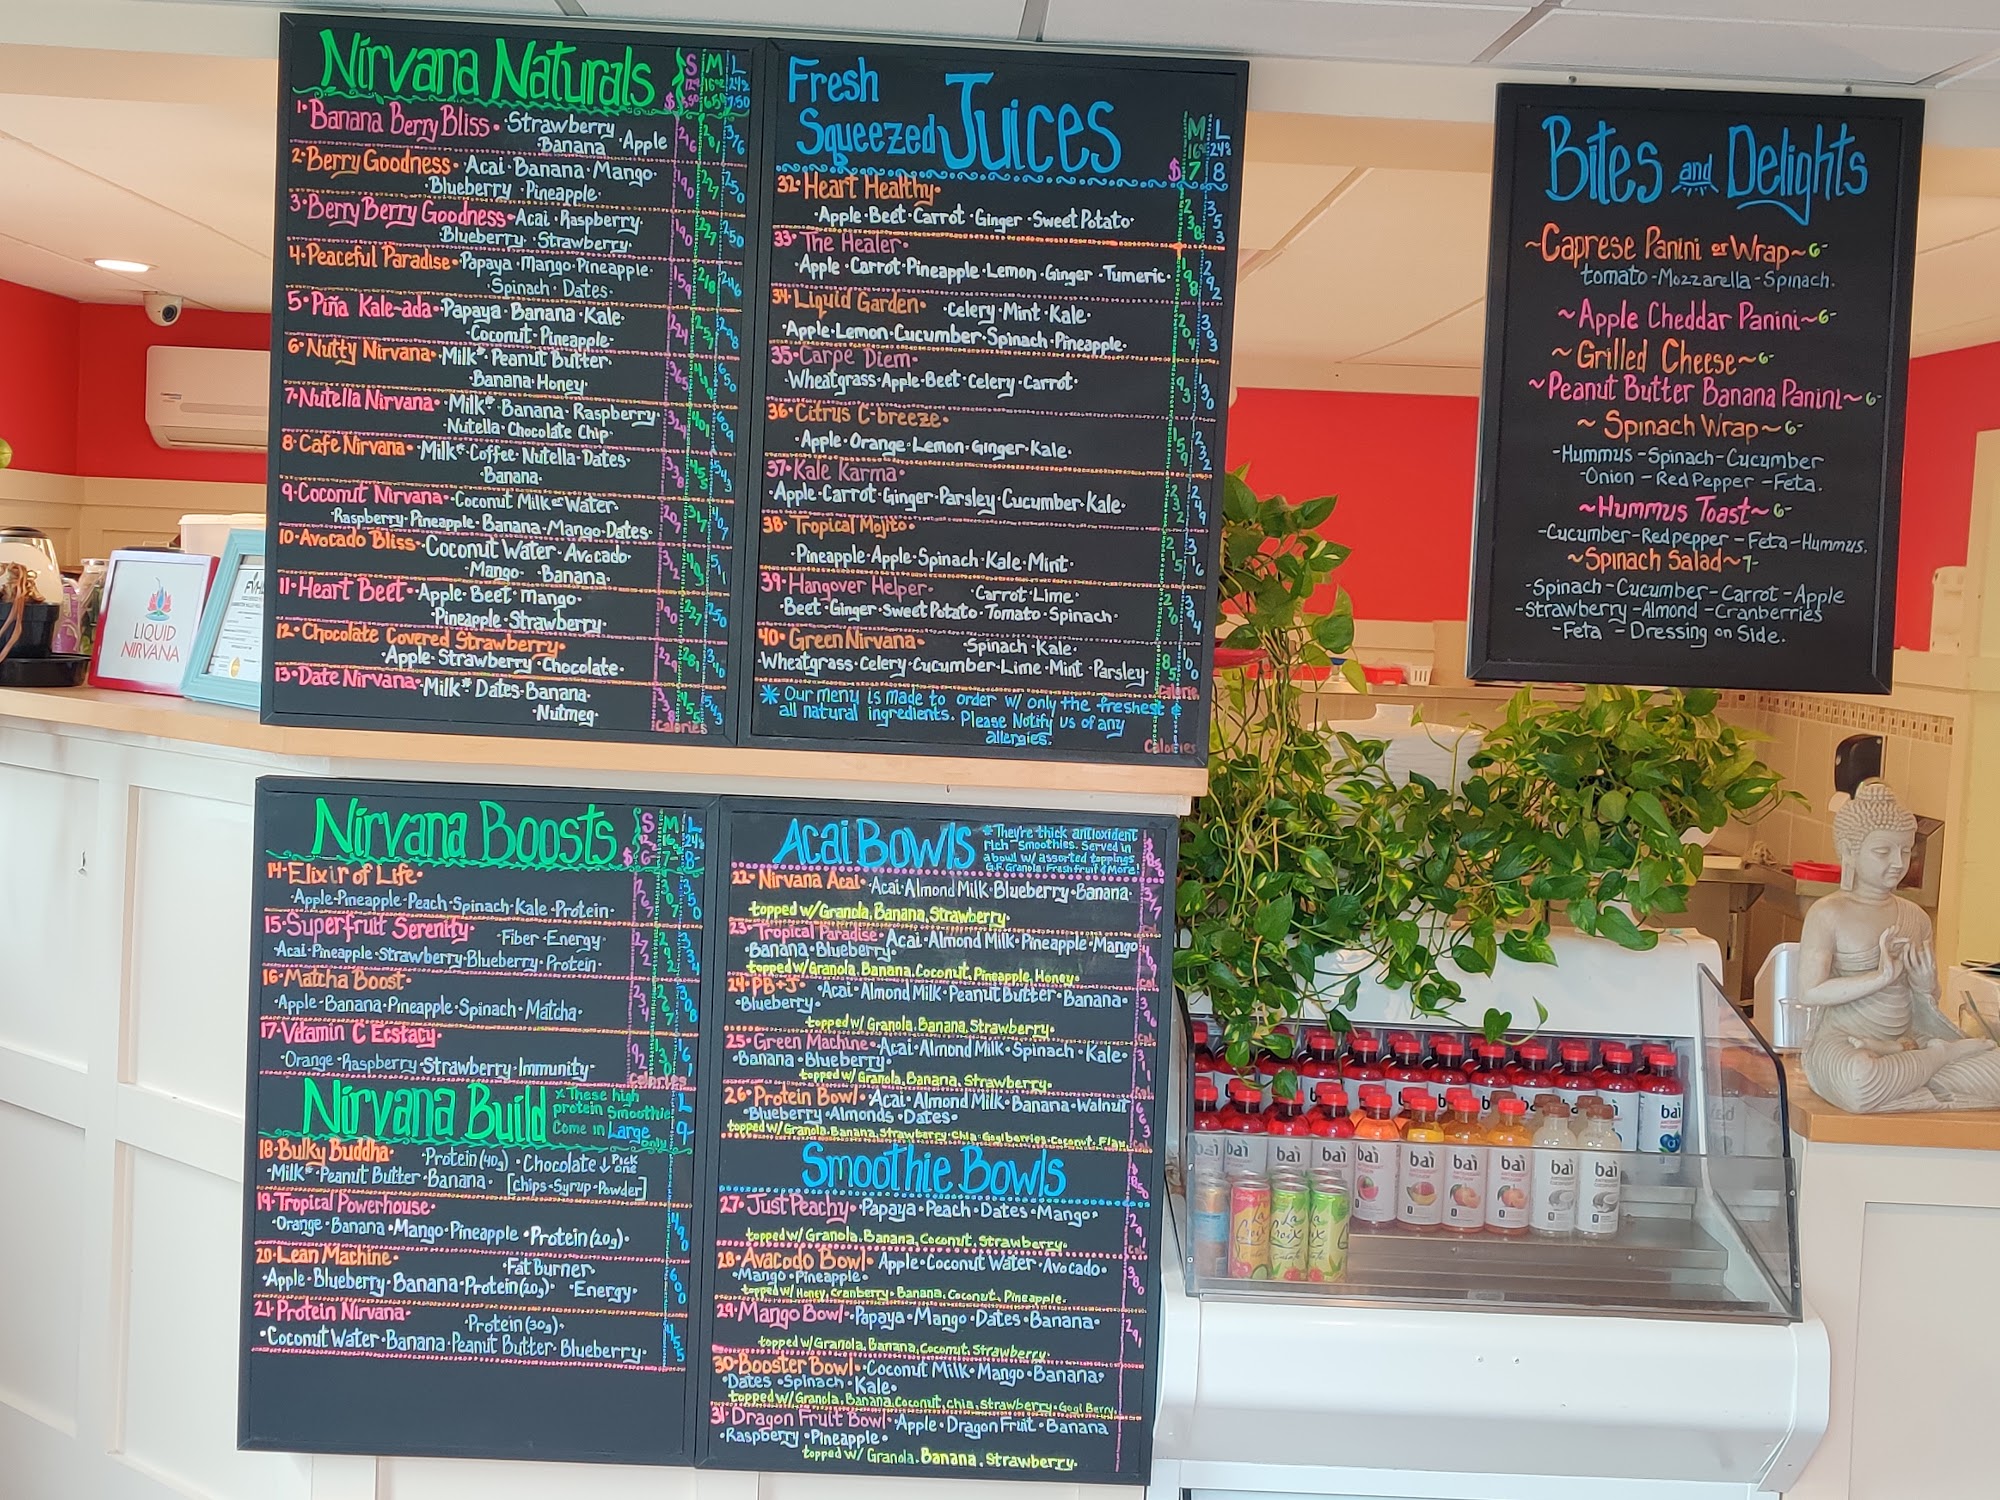 Nirvana Naturals S M L
12oz 16oz 24oz
$ 5.50 6.50 7.50
1. Banana Berry Bliss • Strawberry
• Banana • Apple
2. Berry Goodness • Acai • Banana • Mango •
Blueberry • Pineapple • 190 227 250
3. Berry Berry Goodness • Acai • Raspberry •
Blueberry • Strawberry • 190 227 250
4. Peaceful Paradise • Papaya • Mango • Pineapple •
• Spinach • Dates •
5. Piña Kale-ada • Papaya • Banana • Kale •
• Coconut • Pineapple •
6. Nutty Nirvana • Milk* • Peanut Butter •
• Banana • Honey •
7. Nutella Nirvana • Milk* • Banana • Raspberry •
• Nutella • Chocolate Chip • 324 401 609
8. Cafe Nirvana • Milk* • Coffee • Nutella • Dates •
• Banana • 338 455 543
9. Coconut Nirvana • Coconut Milk or Water •
Raspberry • Pineapple • Banana • Mango • Dates • 207 317 407
10. Avocado Bliss • Coconut Water • Avocado •
• Mango • • Banana •
11. Heart Beet • Apple • Beet • mango •
Pineapple • Strawberry • 190 227 250
12. Chocolate Covered Strawberry •
• Apple • Strawberry • Chocolate • 229 281 340
13. Date Nirvana • Milk* • Dates • Banana •
• Nutmeg • 338 455 543
Calories
Fresh
Squeezed Juices
M L
16oz 24oz
$ 7 8
32. Heart Healthy •
• Apple • Beet • Carrot • Ginger • Sweet Potato • 238 353
33. The Healer •
• Apple • Carrot • Pineapple • Lemon • Ginger • Tumeric • 198 292
34. Liquid Garden • • Celery • Mint • Kale •
• Apple • Lemon • Cucumber • Spinach • Pineapple • 204 303
35. Carpe Diem •
• Wheatgrass • Apple • Beet • Celery • Carrot • 93 130
36. Citrus C-breeze •
• Apple • Orange • Lemon • Ginger • Kale • 159 232
37. Kale Karma •
• Apple • Carrot • Ginger • Parsley • Cucumber • Kale • 232 249
38. Tropical Mojito •
• Pineapple • Apple • Spinach • Kale • Mint • 215 316
39. Hangover Helper • • Carrot • Lime •
• Beet • Ginger • Sweet Potato • Tomato • Spinach • 270 394
40. Green Nirvana • • Spinach • Kale •
• Wheatgrass • Celery • Cucumber • Lime • Mint • Parsley •
* Our menu is made to order w/ only the freshest &
all natural ingredients. Please Notify us of any
allergies.
Calories
Bites and Delights
~Caprese Panini or Wrap~6-
tomato - Mozzarella - Spinach.
~Apple Cheddar Panini~6-
~Grilled Cheese~6-
~Peanut Butter Banana Panini~6-
~Spinach Wrap~6-
-Hummus - Spinach - Cucumber
- Onion - Red Pepper - Feta.
~Hummus Toast~6-
-Cucumber - Red pepper - Feta - Hummus.
~Spinach Salad~7-
-Spinach - Cucumber - Carrot - Apple
-Strawberry - Almond - Cranberries
-Feta - Dressing on Side.
LIQUID
NIRVANA
Nirvana Boosts S M L
$ 6- 7- 8-
14. Elixir of Life •
• Apple • Pineapple • Peach • Spinach • Kale • Protein • 267 307 350
15. Superfruit Serenity • • Fiber • Energy •
Acai • Pineapple • Strawberry • Blueberry • Protein • 272 292 334
16. Matcha Boost •
• Apple • Banana • Pineapple • Spinach • Matcha • 234 267 308
17. Vitamin C Ecstacy •
• Orange • Raspberry • Strawberry • Immunity •
Calories
Nirvana Build
* These high
protein Smoothie
Come in Large only
L
9-
18. Bulky Buddha • • Protein (40g) • Chocolate ↓ Pick one
• Milk* • Peanut Butter • Banana • [Chips • Syrup • Powder]
19. Tropical Powerhouse •
• Orange • Banana • Mango • Pineapple • Protein (20g) • 490
20. Lean Machine • • Fat Burner •
• Apple • Blueberry • Banana • Protein (20g) • • Energy • 600
21. Protein Nirvana • • Protein (30g) •
• Coconut Water • Banana • Peanut Butter • Blueberry • 455
Acai Bowls
* They're thick antioxident
rich - Smoothies. Served in
a bowl w/ assorted toppings
G.F. Granola Fresh fruit & More!
22. Nirvana Acai • Acai • Almond Milk • Blueberry • Banana •
topped w/ Granola, Banana, Strawberry.
23. Tropical Paradise • Acai • Almond Milk • Pineapple • Mango
• Banana • Blueberry •
topped w/ Granola, Banana, Coconut, Pineapple, Honey •
24. PB+J • • Acai • Almond Milk • Peanut Butter • Banana •
• Blueberry •
topped w/ Granola, Banana, Strawberry.
25. Green Machine • Acai • Almond Milk • Spinach • Kale •
• Banana • Blueberry •
topped w/ Granola, Banana, Strawberry.
26. Protein Bowl • Acai • Almond Milk • Banana • Walnut
• Blueberry • Almonds • Dates •
topped w/ Granola, Banana, Strawberry, Chia, Gogi berries, Coconut, Flax.
Smoothie Bowls
27. Just Peachy • Papaya • Peach • Dates • Mango •
topped w/ Granola, Banana, Coconut, Strawberry.
28. Avacodo Bowl • Apple • Coconut Water • Avocado •
• Mango • Pineapple •
topped w/ Honey, Cranberry • Banana, Coconut, Pineapple.
29. Mango Bowl • Papaya • Mango • Dates • Banana •
topped w/ Granola, Banana, Coconut, Strawberry.
30. Booster Bowl • Coconut Milk • Mango • Banana •
• Dates • Spinach • Kale •
topped w/ Granola, Banana, Coconut, Chia, Strawberry, Gogi Berry.
31. Dragon Fruit Bowl • Apple • Dragon Fruit • Banana
• Raspberry • Pineapple •
topped w/ Granola, Banana, Strawberry.
bai bai bai bai bai bai bai bai bai
La Croix